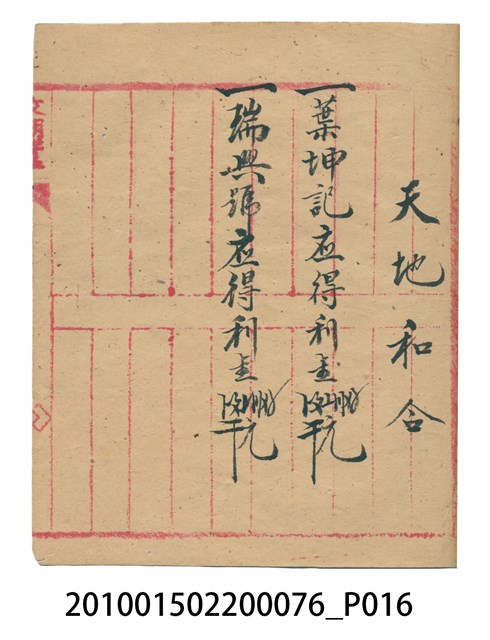 天地和合
一葉坤記應得利金
一瑞興號應得利金
201001502200076_P016